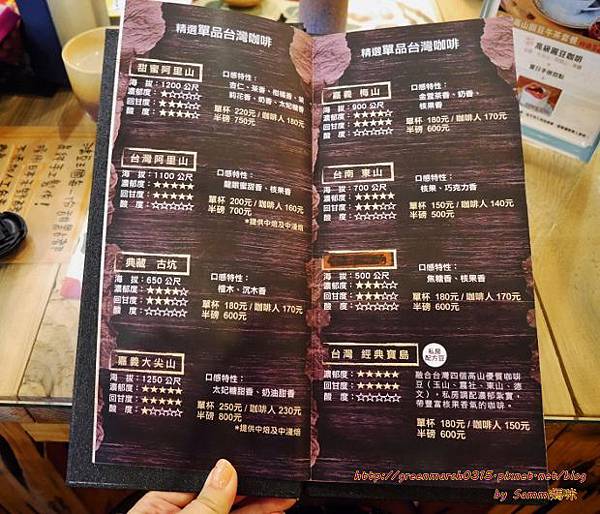 精選單品台灣咖啡
甜蜜阿里山
海　拔：1200 公尺
濃郁度：
回甘度：
酸　度：
口感特性：
杏仁、茶香、柑橘香、茉
莉花香、奶香、太妃糖香
單杯 220元 / 咖啡人 180元
半磅 750元
台灣阿里山
海　拔：1100 公尺
濃郁度：★★★★★
回甘度：★★★★★
酸　度：
口感特性：
龍眼蜜甜香、核果香
單杯 200元 / 咖啡人 160元
半磅 700元
*提供中焙及中淺焙
典藏 古坑
海　拔：650 公尺
濃郁度：
回甘度：
酸　度：
口感特性：
檀木、沉木香
單杯 180元 / 咖啡人 170元
半磅 600元
嘉義大尖山
海　拔：1250 公尺
濃郁度：★★★★★
回甘度：★★★★★
酸　度：★☆☆☆☆
口感特性：
太妃糖甜香、奶油甜香
單杯 250元 / 咖啡人 230元
半磅 800元
*提供中焙及中淺焙
精選單品台灣咖啡
嘉義 梅山
海　拔：900 公尺
濃郁度：
回甘度：
酸　度：
口感特性：
金萱茶香、奶香、
核果香
單杯 180元 / 咖啡人 170元
半磅 600元
台南 東山
海　拔：700 公尺
濃郁度：
回甘度：
酸　度：
口感特性：
核果、巧克力香
單杯 150元 / 咖啡人 140元
半磅 500元
海　拔：500 公尺
濃郁度：
回甘度：
酸　度：
口感特性：
焦糖香、核果香
單杯 180元 / 咖啡人 170元
半磅 600元
台灣 經典寶島
私房
配方豆
濃郁度：★★★★★
回甘度：★★★★★
酸　度：
融合台灣四個高山優質咖啡
豆（玉山、霧社、東山、德
文），私房調配濃郁紮實，
帶豐富核果香氣的咖啡。
單杯 180元 / 咖啡人 150元
半磅 600元
http://greenmarsh0315.pixnet.net/blog
by Sammi媽咪